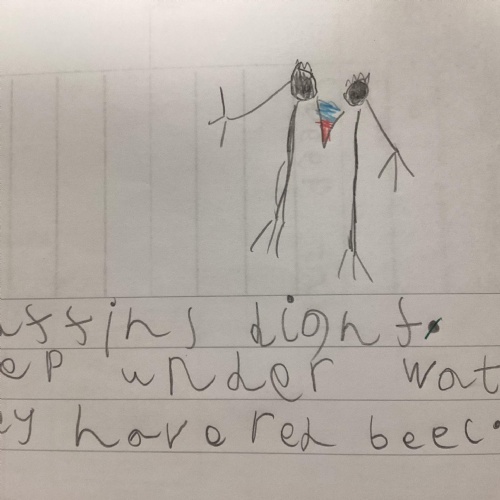 uffins
ep under wat
ey have red beec.